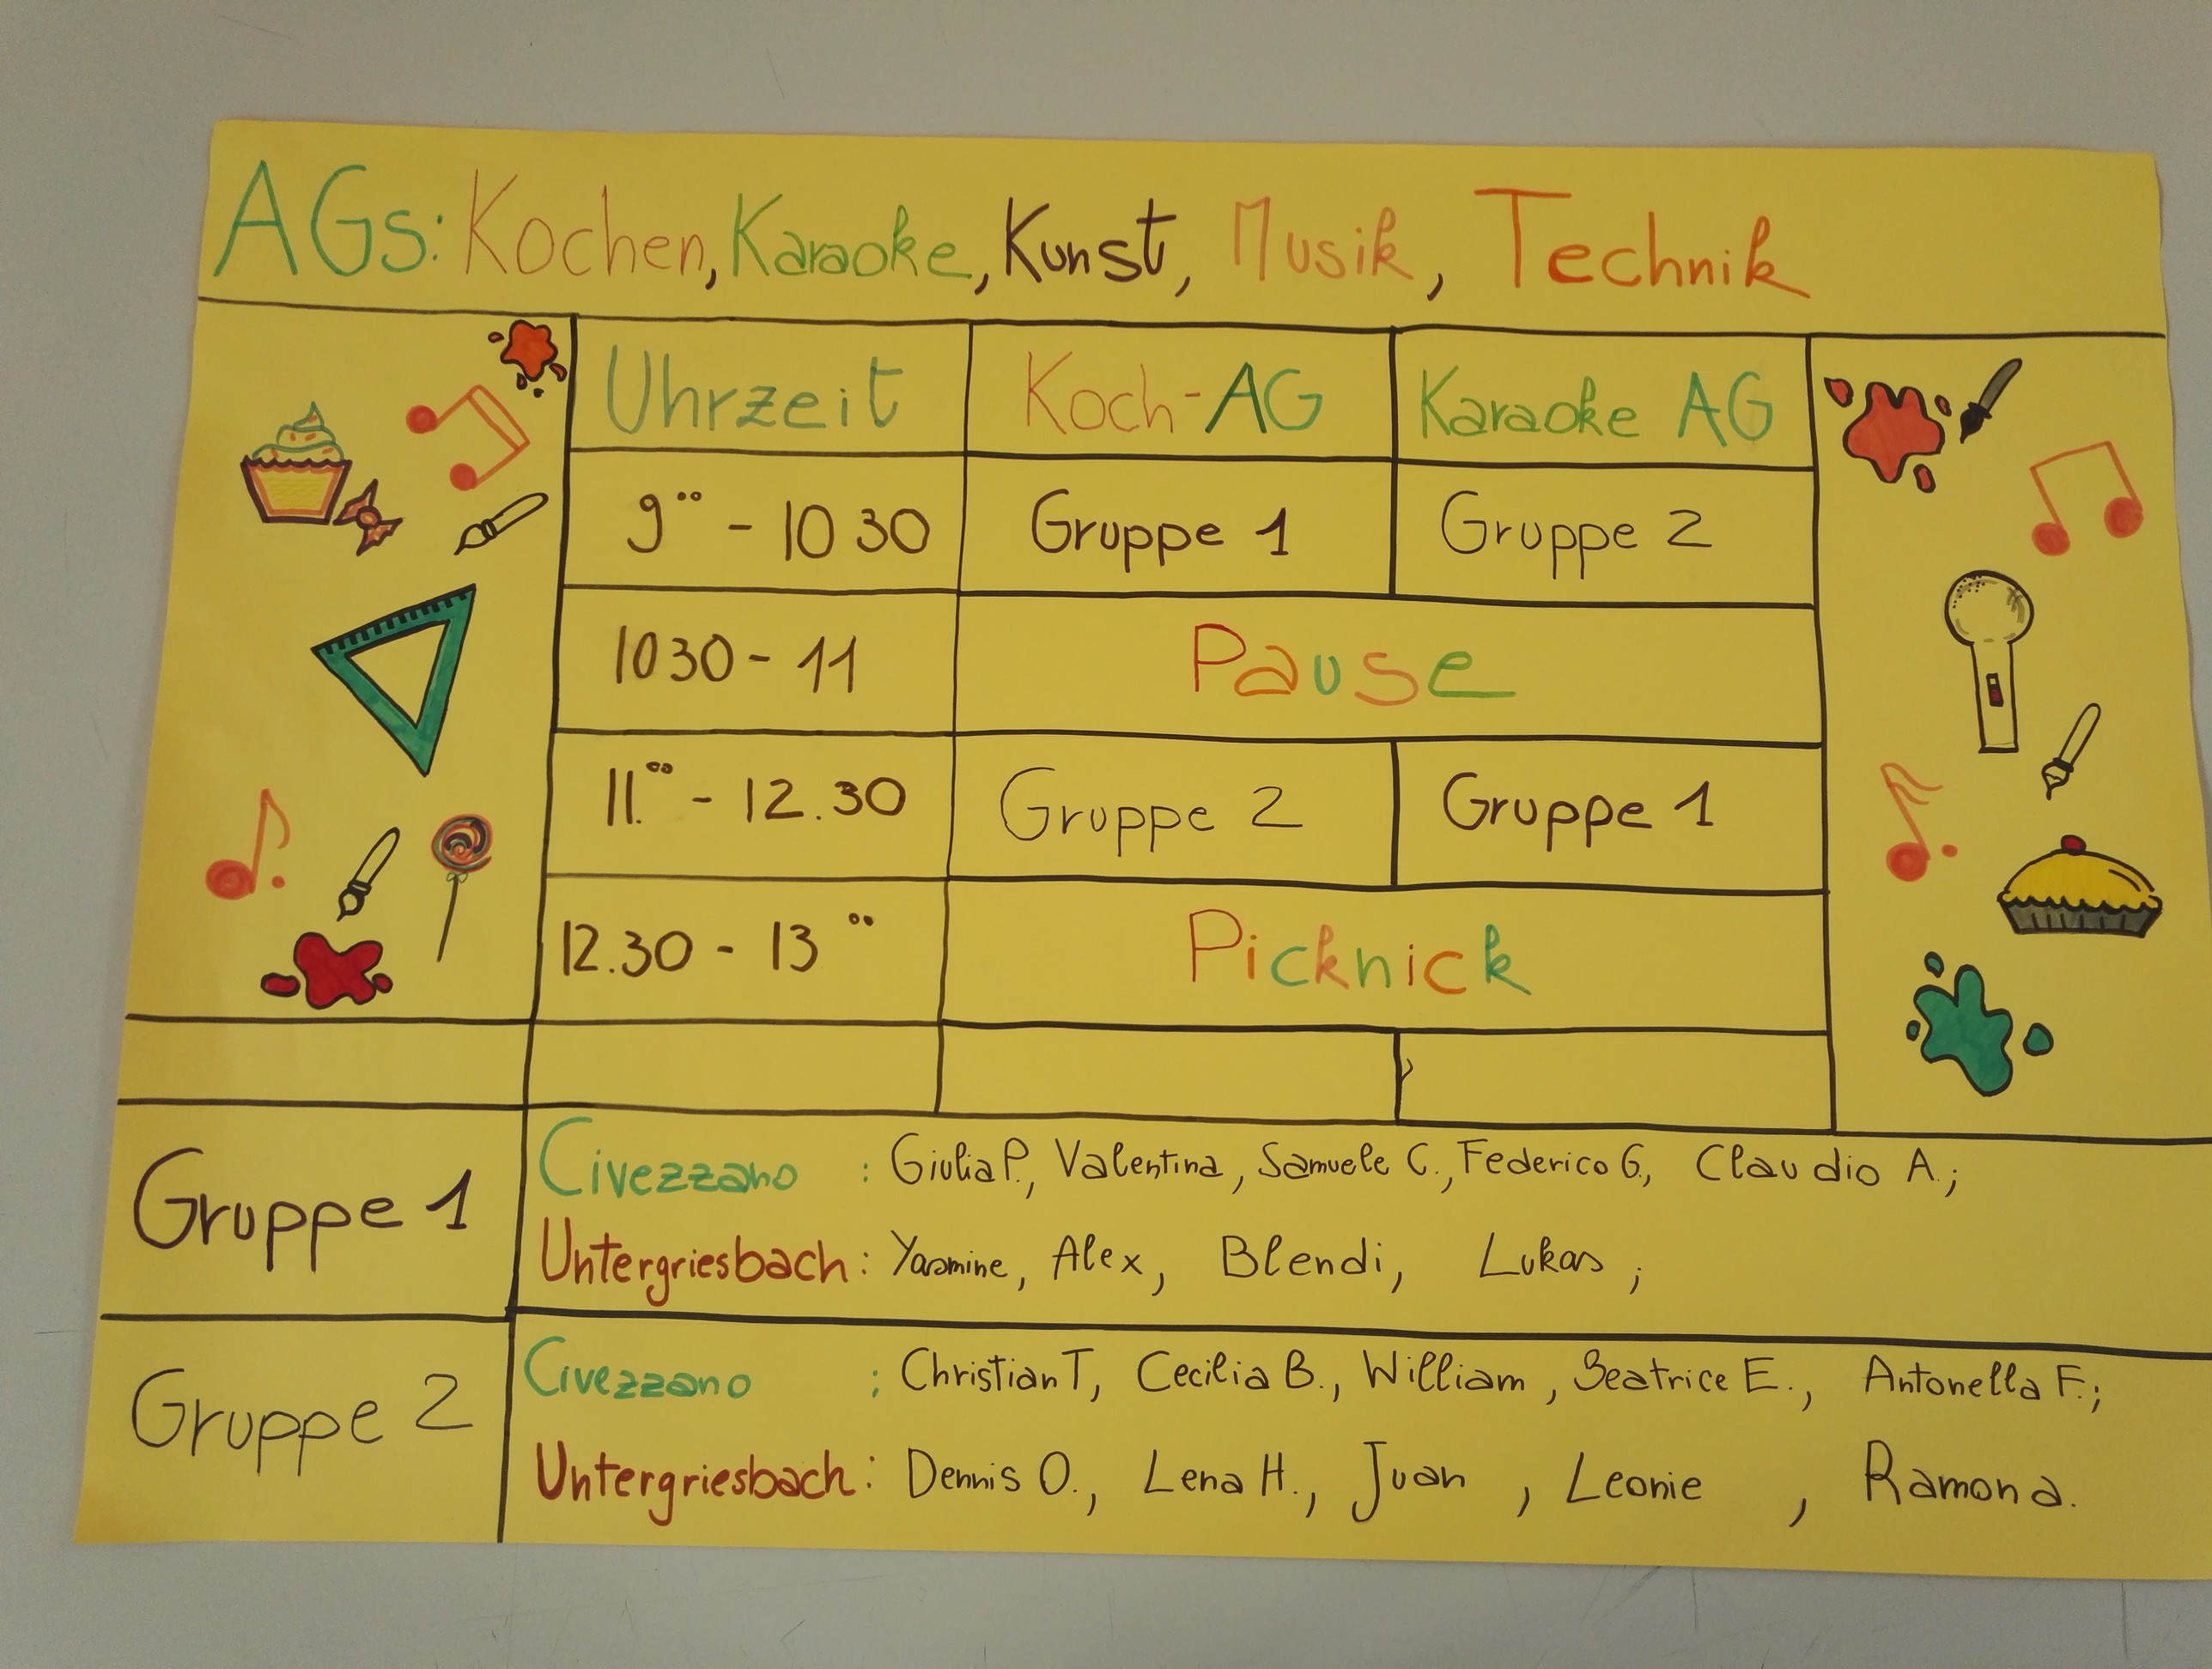 AGs: Kochen, Karaoke, Kunst, Musik, Technik
Uhrzeit Koch-AG Karaoke AG
9°° - 10 30 Gruppe 1 Gruppe 2
10 30 - 11 Pause
11.°° - 12.30 Gruppe 2 Gruppe 1
12.30 - 13 °° Picknick
Gruppe 1
Civezzano : Giulia P., Valentina, Samuele C., Federico G., Claudio A.;
Untergriesbach: Yasmine, Alex, Blendi, Lukas ;
Gruppe 2
Civezzano ; Christian T, Cecilia B., William, Beatrice E., Antonella F.;
Untergriesbach: Dennis O., Lena H., Juan , Leonie , Ramona.